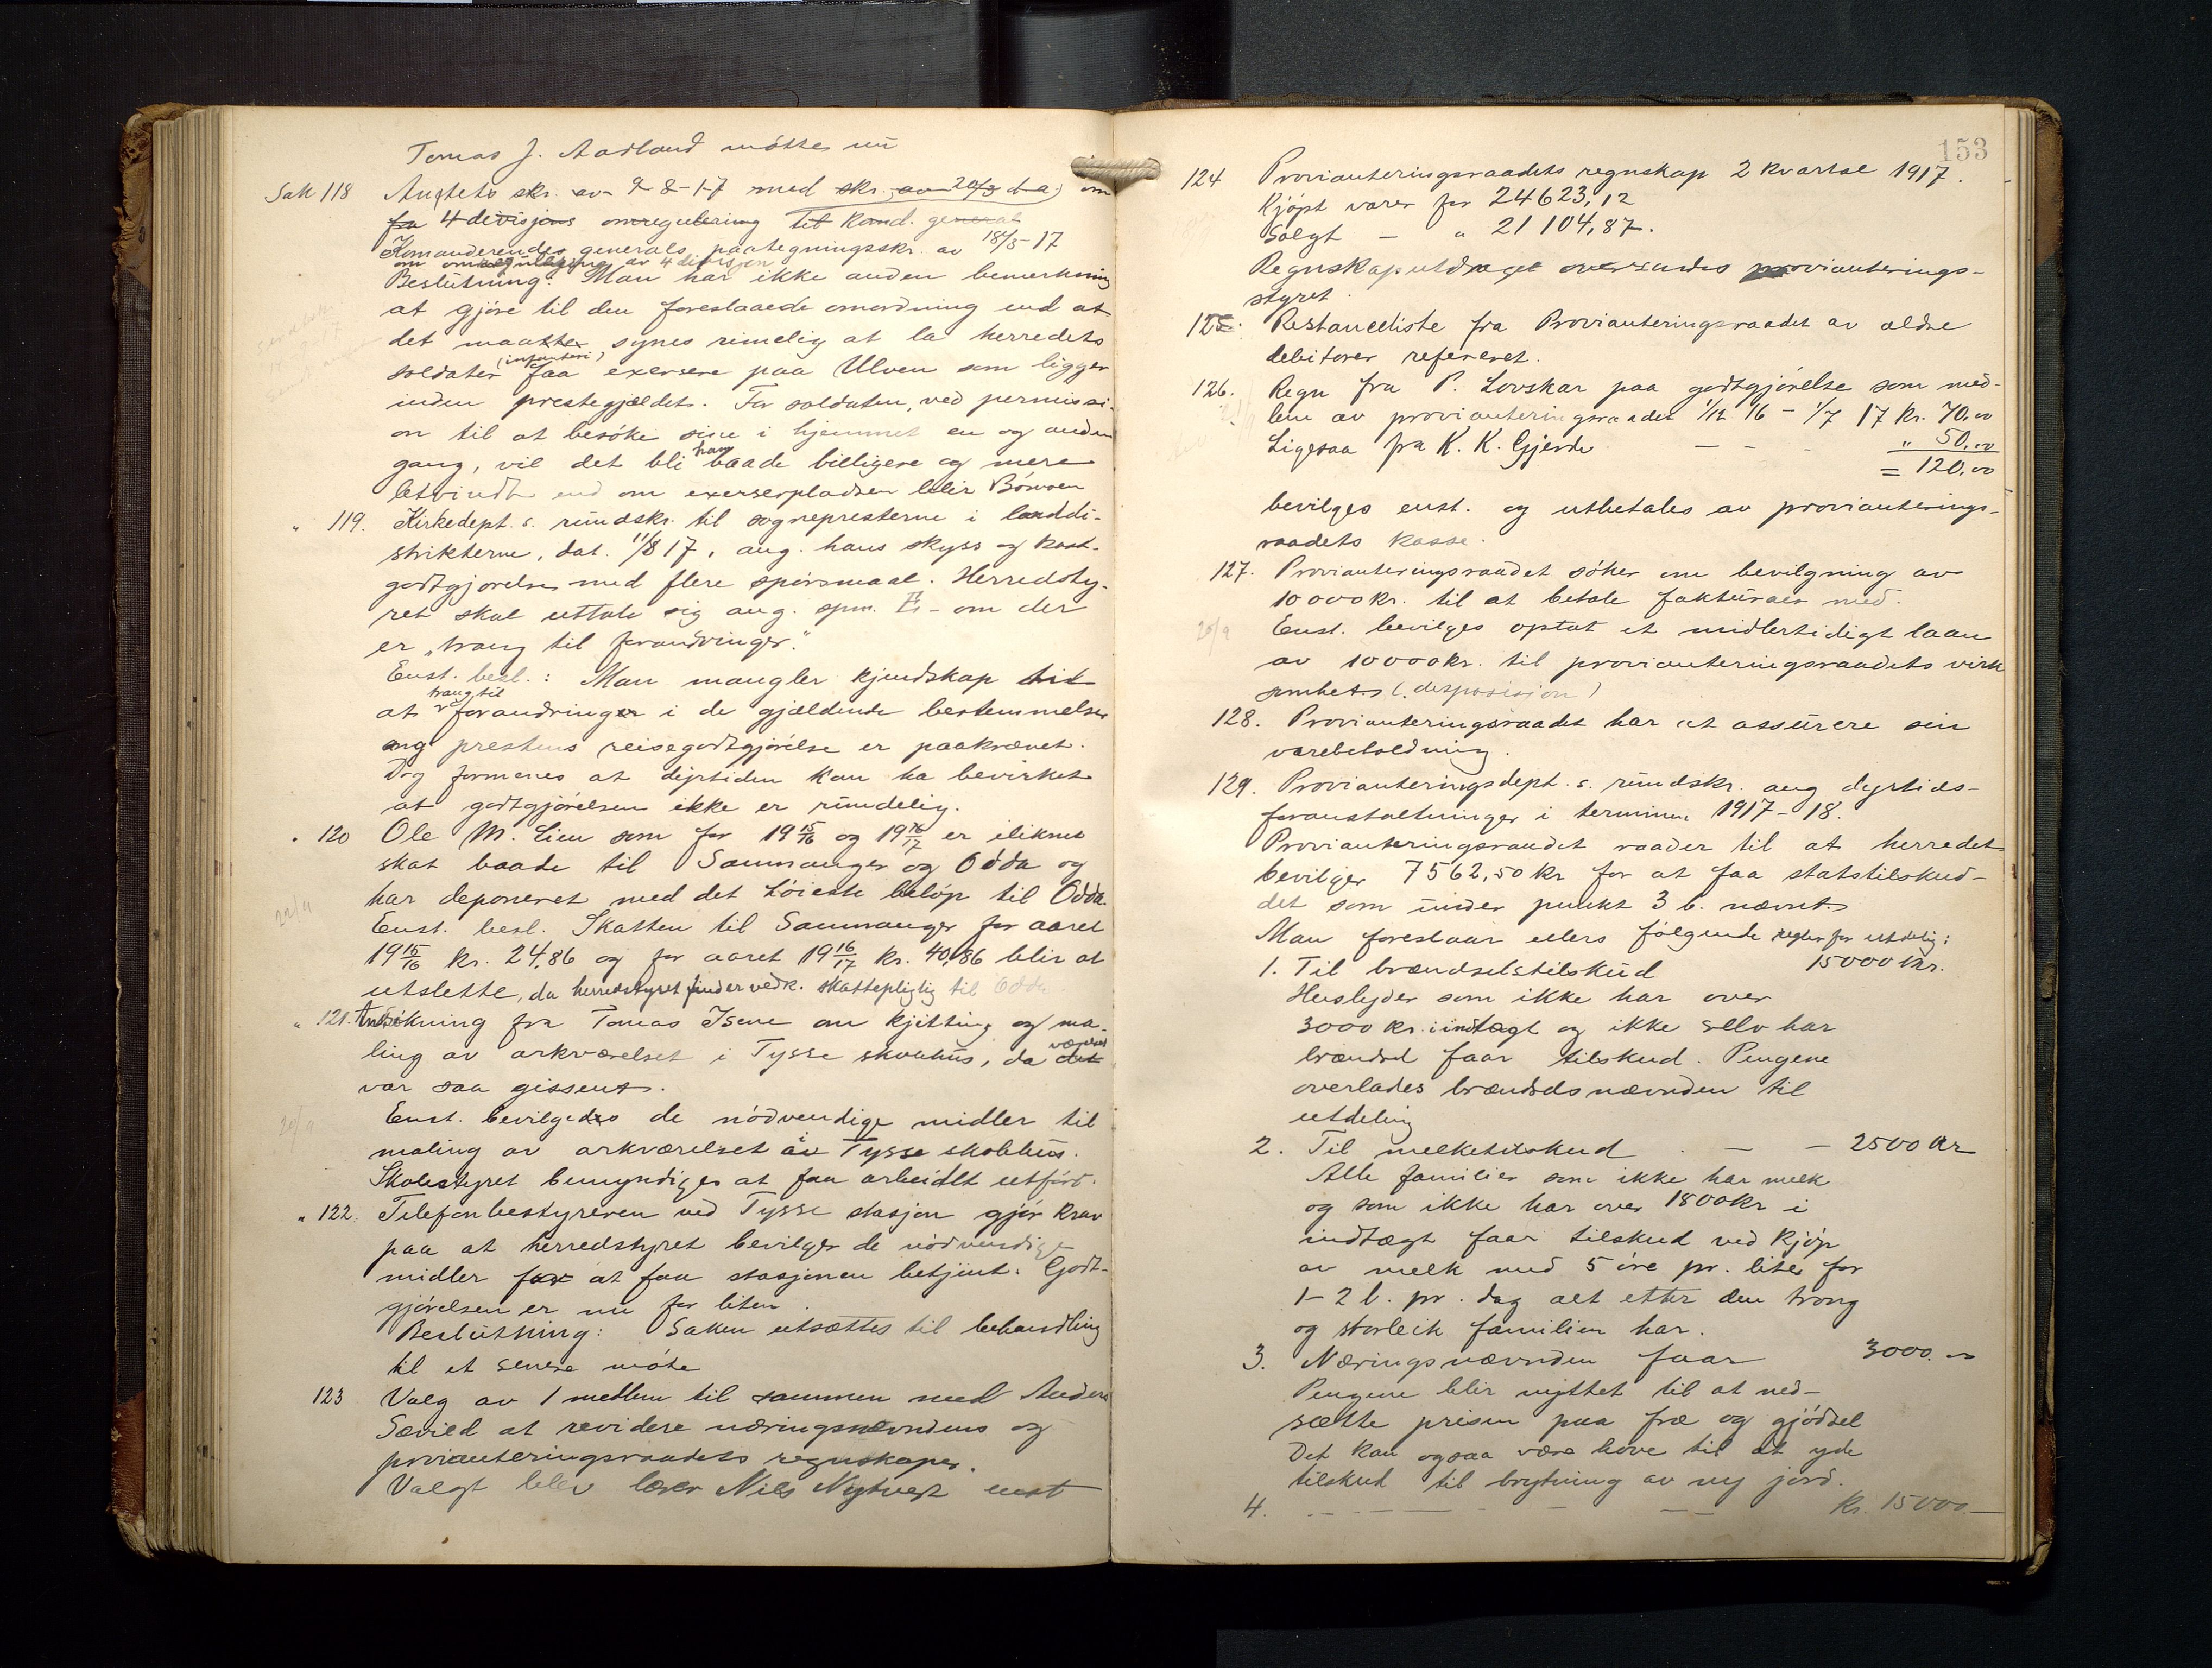 Tomas J. Aadland møtte nu
Sak 118 Amtets skr. av 9-8-17 med skr. av 20/3 d.a. om
fra 4 divisjons omregulering til komd. general
Komanderendes generals paategningsskr. av 18/5-17
om omregulering av 4 divisjon
Beslutning: Man har ikke anden bemerkning
at gjøre til den foreslaaede omordning end at
det maatte synes rimelig at la herredets
soldater (infanteri) faa exersere paa Ulven som ligger
inden prestegjældet. For soldaten, ved permissi-
on til at besøke sine i hjemmet en og anden
gang, vil det bli ham baade billigere og mere
letvindt end om exerserpladsen blir Bømoen
" 119. Kirkedept.s. rundskr. til sognepresterne i landdi-
strikterne, dat. 11/8 17, ang. hans skyss og kost-
godtgjørelse med flere spørsmaal. Herredsty-
ret skal uttale sig ang. spm. II - om der
er "trang til forandringer."
Enst. besl.: Man mangler kjendskap til
at trang til forandringer i de gjældende bestemmelser
ang prestens reisegodtgjørelse er paakrævet.
Dog formenes at dyrtiden kan ha bevirket
at godtgjørelsen ikke er rundelig.
" 120 Ole M. Lien som for 19 15/16 og 19 16/17 er iliknet
skat baade til Samnanger og Odda og
har deponeret med det høieste beløp til Odda.
22/9
Enst. besl. Skatten til Samnanger for aaret
19 15/16 kr. 24,86 og for aaret 19 16/17 kr. 40,86 blir at
utslette, da herredstyret finder vedk. skattepligtig til Odda
" 121. Ansøkning fra Tomas Isene om kjitting og ma-
ling av arkværelset i Tysse skolehus, da det værelset
var saa gissent.
20/9
Enst. bevilgedes de nødvendige midler til
maling av arkværelset av Tysse skolhus.
Skolestyret bemyndiges at faa arbeidet utført.
" 122. Telefonbestyreren ved Tysse stasjon gjør krav
paa at herredstyret bevilger de nødvendige
midler for at faa stasjonen betjent. Godt-
gjørelsen er nu for liten.
Beslutning: Saken utsættes til behandling
til et senere møte
123 Valg av 1 medlem til sammen med Anders
Sævild at revidere næringsnævndens og
provianteringsraadets regnskaper.
Valgt blev lærer Nils Nytvedt enst
153
124 Provianteringsraadets regnskap 2 kvartal 1917.
Kjøpt varer for 24623,12
Solgt — " 21104,87.
Regnskaputdraget oversendes provianterings-
styret.
125. Restanceliste fra Provianteringsraadet av ældre
debitorer refereret.
126. Regn fra P. Lovskar paa godtgjørelse som med-
lem av provianteringsraadet 1/12 16 - 1/7 17 kr. 70.00
Ligesaa fra K. K. Gjerde — — - " 50.00
= 120.00
bevilges enst. og utbetales av provianterings-
raadets kasse.
127. Provianteringsraadet søker om bevilgning av
10000 kr. til at betale fakturaer med.
20/9
Enst. bevilges optat et midlertidigt laan
av 10000 kr. til provianteringsraadets virk
somhet (disposisjon)
128. Provianteringsraadet har at assurere sin
varebeholdning.
129. Provianteringsdept.s. rundskr. ang dyrtids-
foranstaltninger i terminen 1917-18.
Provianteringsraadet raader til at herredet
bevilger 7562,50 kr for at faa statstilskud-
det som under punkt 3 b. nævnt.
Man foreslaar ellers følgende regler for utdeling:
1. Til brændselstilskud 15000 kr.
Huslyder som ikke har over
3000 kr. i indtægt og ikke selv har
brændsel faar tilskud. Pengene
overlades brændselsnævnden til
utdeling
2. Til melketilskud — — 2500 kr
Alle familier som ikke har melk
og som ikke har over 1800 kr i
indtægt faar tilskud ved kjøp
av melk med 5 øre pr. liter for
1-2 l. pr. dag alt etter den trong
og storleik familien har.
3. Næringsnævnden faar 3000.00
Pengene blir nyttet til at ned-
sætte prisen paa frø og gjødsel
Det kan ogsaa være høve til at yde
tilskud til brytning av ny jord.
4. — — — — kr. 15000.—